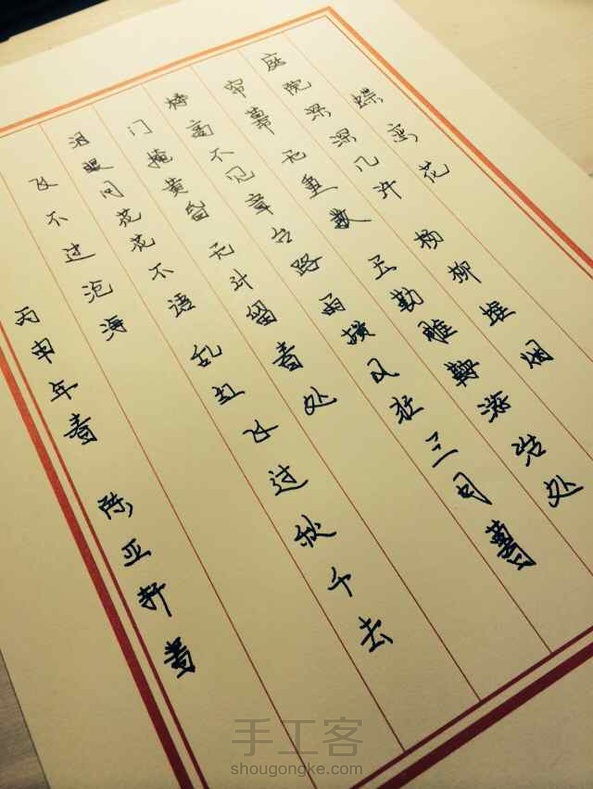 蝶恋花
庭院深深几许 杨柳堆烟
帘幕无重数 玉勒雕鞍游冶处
楼高不见章台路 雨横风狂三月暮
门掩黄昏 无计留春处
泪眼问花花不语 乱红飞过秋千去
飞不过沧海
丙申年春 陈亚轩書
手工客
shougongke.com